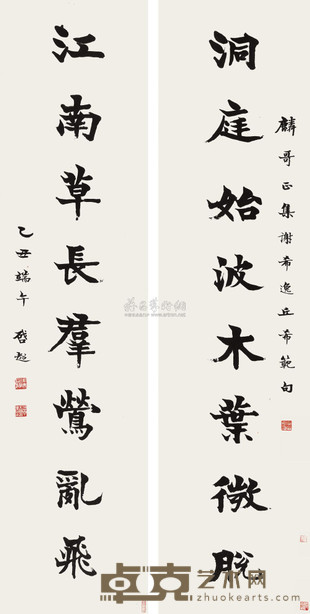 麟哥正集謝希逸丘希範句
洞庭始波木葉微脫
江南草長羣鶯亂飛
乙丑端午
啓超
卓克艺术网
www.zhuokearts.com